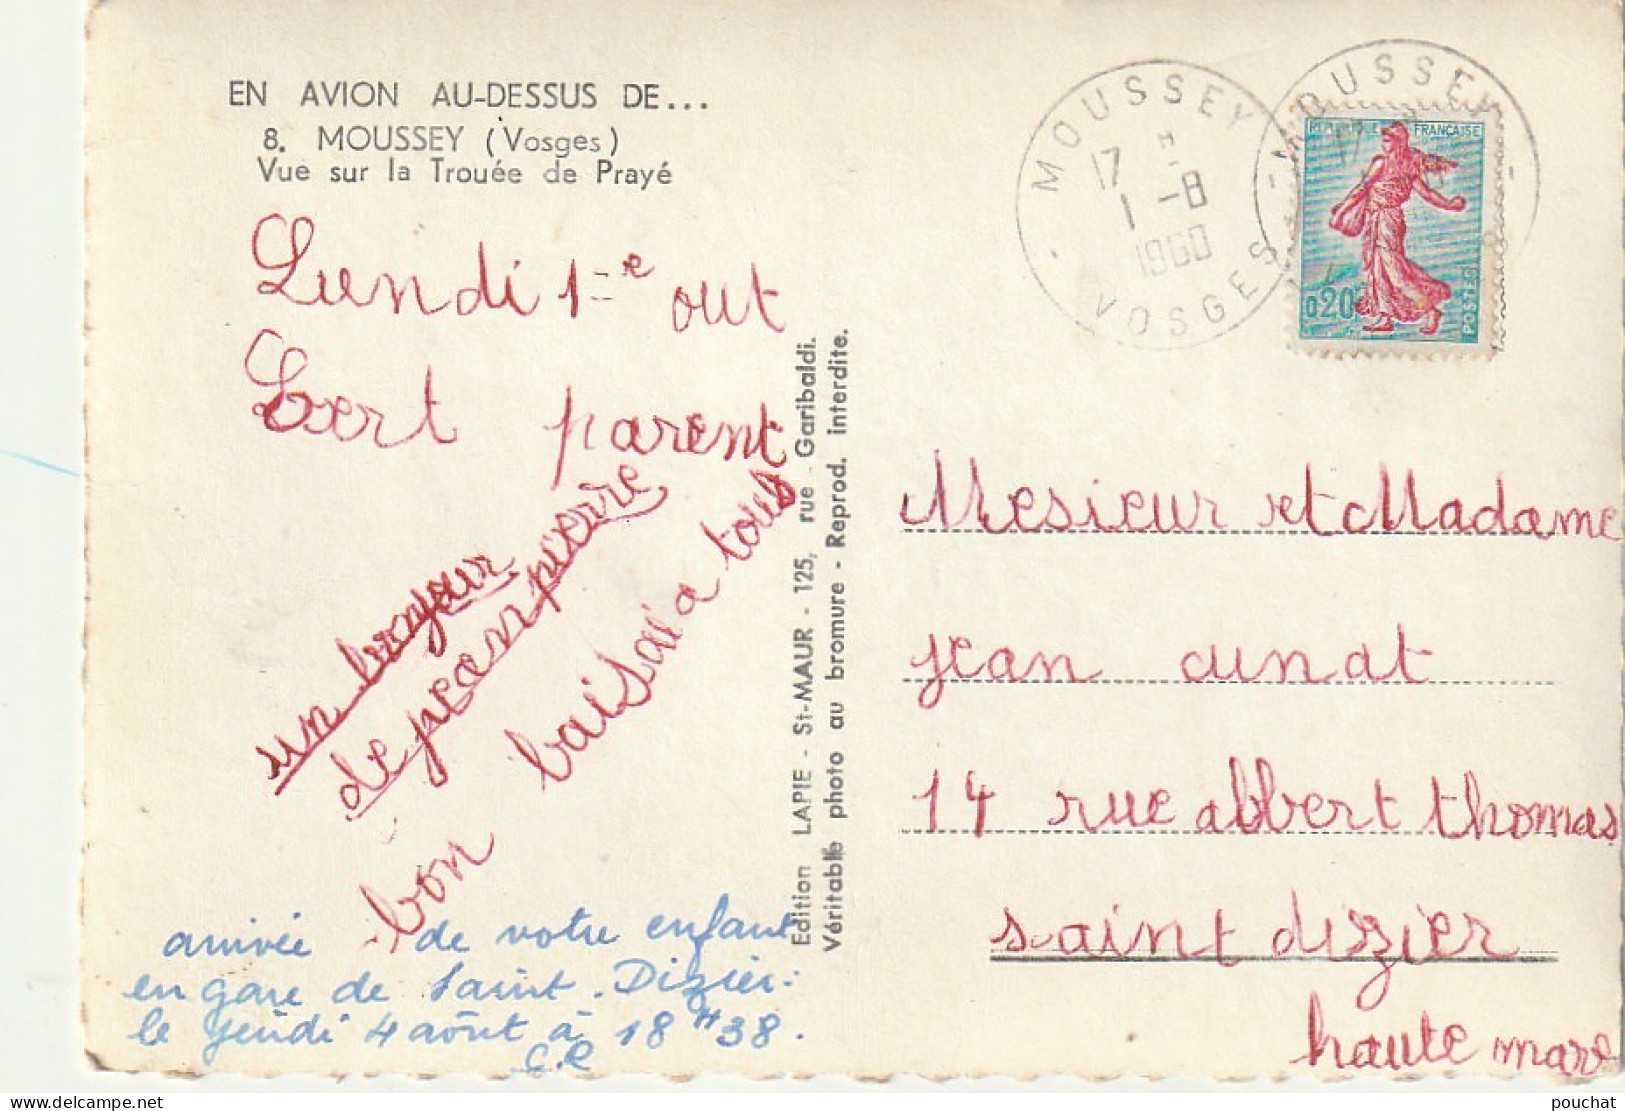 EN AVION AU-DESSUS DE...
8. MOUSSEY (Vosges)
Vue sur la Trouée de Prayé
Lundi 1e out
parent
un bonjour
de jean pierre
bon baisai a tous
arrivée de votre enfant
en gare de Saint. Dizier:
le jeudi 4 août à 18H38.
C.R
Edition LAPIE - St-MAUR - 125, rue Garibaldi.
Véritable photo au bromure - Reprod. interdite.
MOUSSEY
17
1 -8
1960
VOSGES
MOUSSEY
REPUBLIQUE FRANÇAISE
0,20
POSTES
Mesieur et Madame
jean cunat
14 rue abbert thomas
saint dizzier
haute mare
pouchat